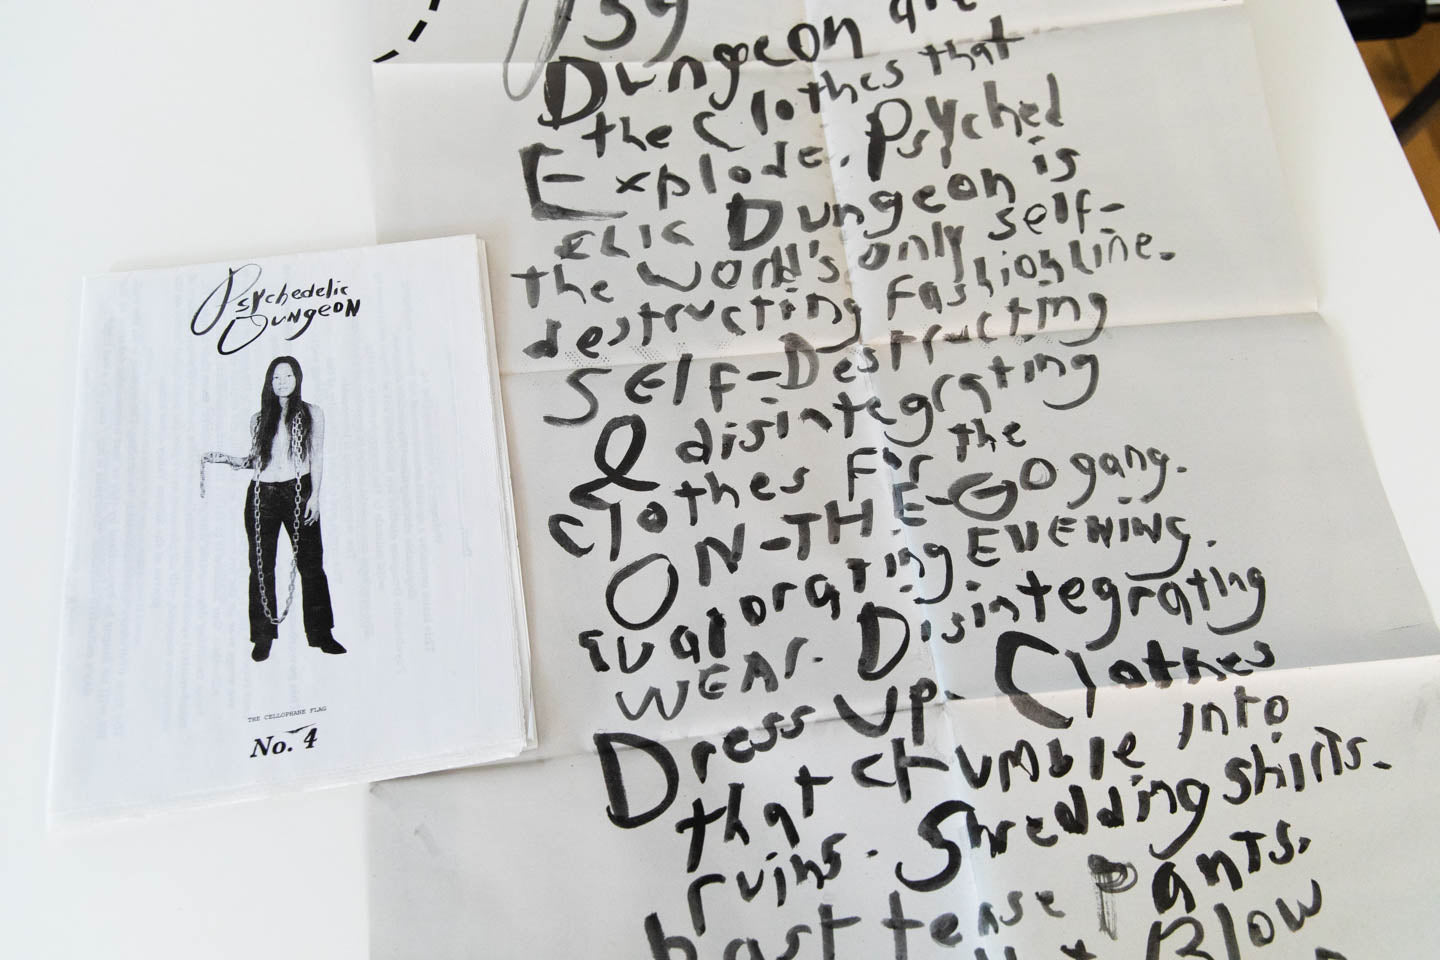 Psychedelic
Dungeon
THE CELLOPHANE FLAG
No. 4
Psy
Dungeon are
the Clothes that
Explode. Psyched
elic Dungeon is
the world's only self-
destructing fashion line.
Self-Destructing
& disintegrating
clothes For the
ON-THE-GO gang.
Evaporating EVENING
WEAr. Disintegrating
Dress Up. Clothes
that crumble into
ruins. Shredding shirts.
past tense Pants.
Blow